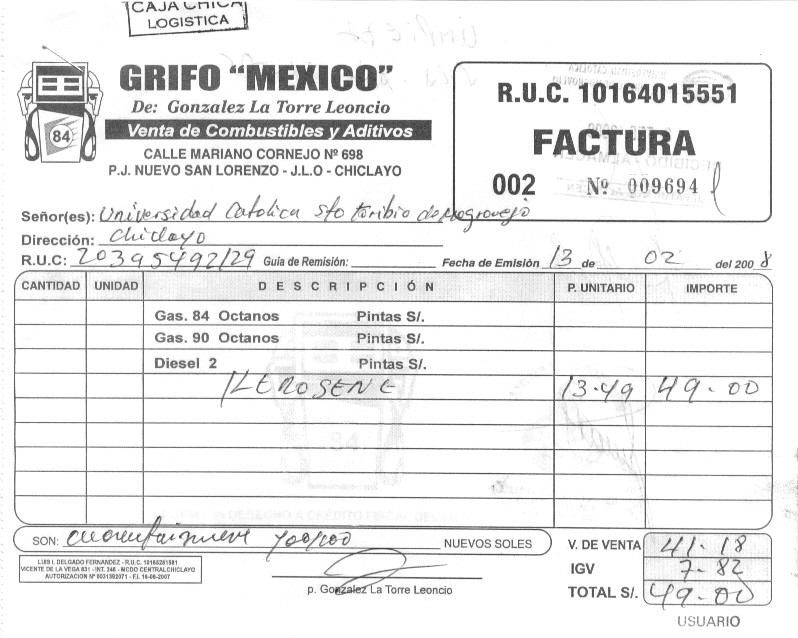 CAJA CHICA
LOGISTICA
GRIFO “MEXICO”
De: Gonzalez La Torre Leoncio
Venta de Combustibles y Aditivos
CALLE MARIANO CORNEJO Nº 698
P.J. NUEVO SAN LORENZO - J.L.O - CHICLAYO
84
R.U.C. 10164015551
FACTURA
002 Nº 009694
Señor(es): Universidad Catolica sto toribio de Mogrovejo
Dirección: Chiclayo
R.U.C: 20395492129 Guía de Remisión: Fecha de Emisión 13 de 02 del 2008
CANTIDAD UNIDAD DESCRIPCIÓN P. UNITARIO IMPORTE
Gas. 84 Octanos Pintas S/.
Gas. 90 Octanos Pintas S/.
Diesel 2 Pintas S/.
KEROSENE 13.49 49.00
SON: Cuarentainueve y00/100 NUEVOS SOLES
V. DE VENTA 41.18
IGV 7.82
TOTAL S/. 49.00
LUIS I. DELGADO FERNANDEZ - R.U.C. 10165281581
VICENTE DE LA VEGA 831 - INT. 246 - MCDO CENTRAL CHICLAYO
AUTORIZACION Nº 0031392071 - F.I. 16-08-2007
p. Gonzalez La Torre Leoncio
USUARIO